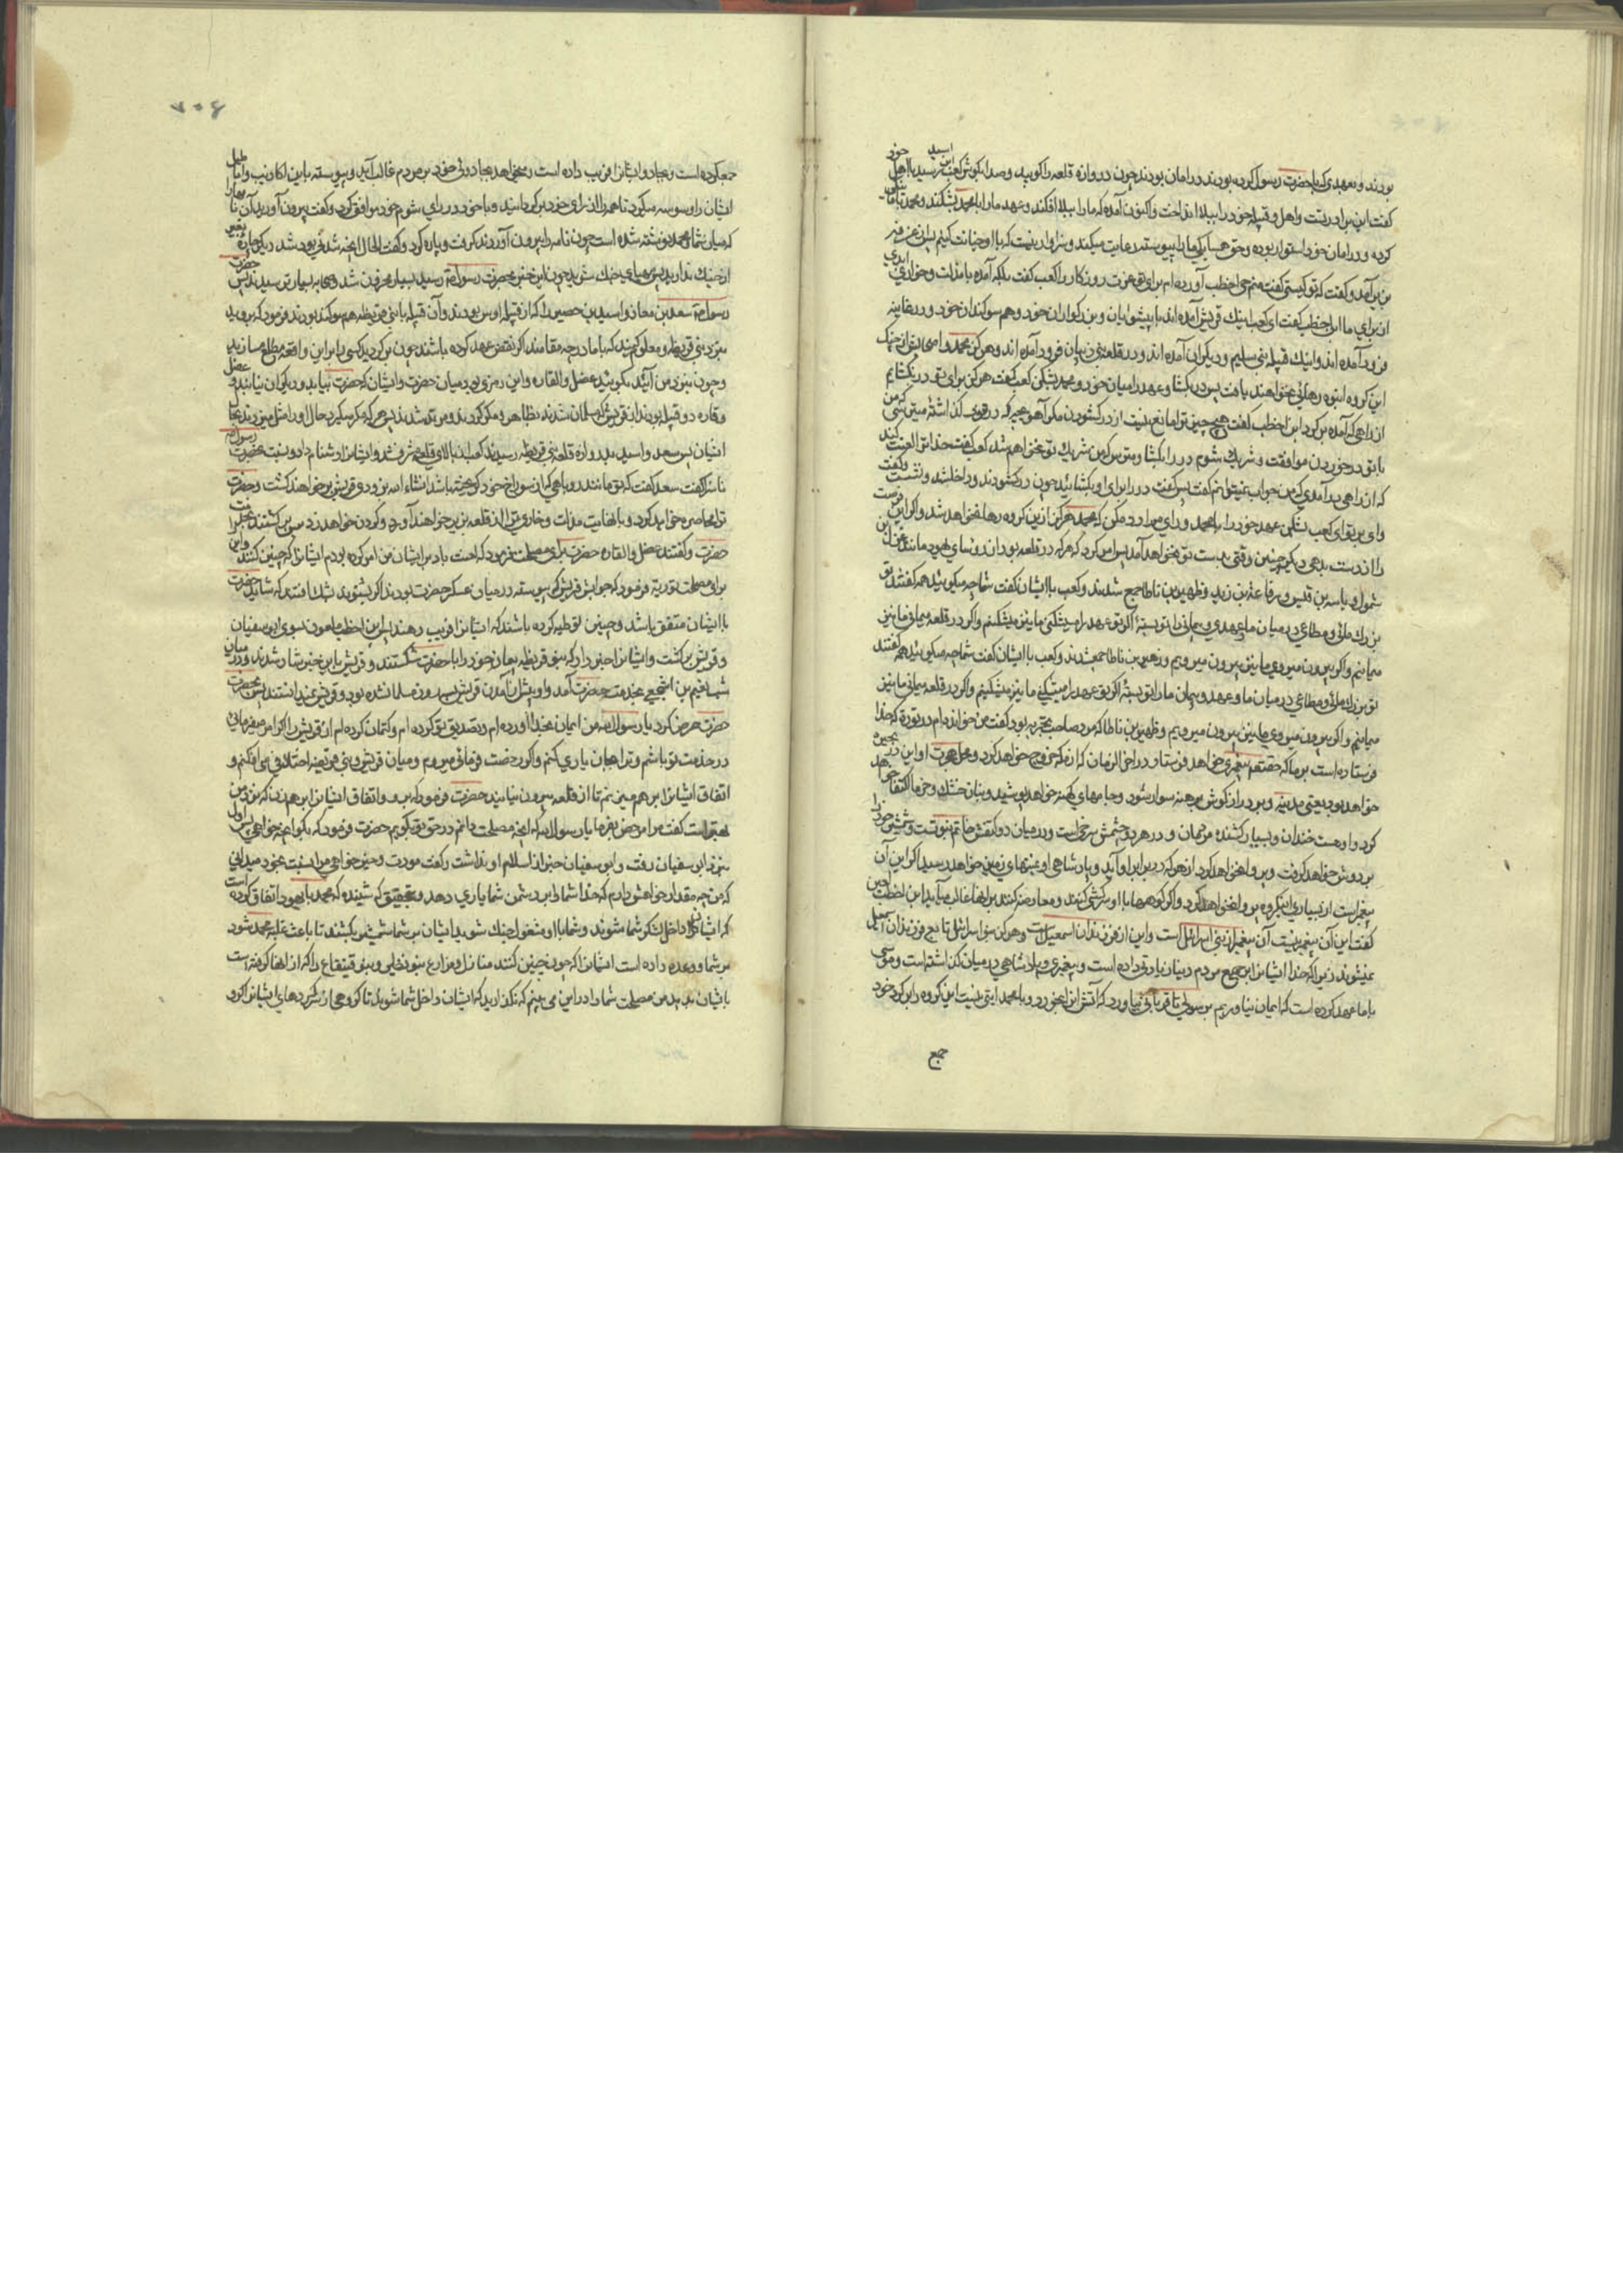 بودند و بعهدی که با حضرت رسول کرده بودند در امان بودند چون دروازه قلعه را کوبید و صدا بگوش کعب بن اسید رسید با اهل خود
گفت این برادر تست و اهل و قبیله خود را ببلا انداخت و اکنون آمده که ما را ببلا افکند و عهد ما را با محمد بشکند و محمد با ما
کرده و در امان خود استوار بوده و حق همسایکی ما را پیوسته رعایت میکند و سزاوار نیست که با او خیانت کنیم پس از غرفه
بزیر آمد و گفت که تو کیستی گفت منم حی اخطب آورده ام برای تو عزت روزکار را کعب گفت بلکه آمده با مذلت و خواری ابدی
از برای ما ابن اخطب گفت ای کعب اینک قریش آمده اند با پیشوایان و بزرکواران خود و هم سوکندان خود و در غابه
فرود آمده اند و اینک قبیله بنی سلیم و دیکران آمده اند و در قلعه بنی ذبیان فرود آمده اند و هرکز محمد و اصحابش از چنک
این کروه انبوه رهائی نخواهند یافت پس در بکشا و عهد را میان خود و محمد بشکن کعب گفت هرکز برای تو در نکشایم
از راهی که آمده برکرد ابن اخطب گفت هیچ چیز ترا مانع نیست از در کشودن مکر آهو بچه که در تنور گذاشته میترسی که من
با تو در خوردن موافقت و شریک شوم در را بکشا و مترس که من شریک تو نخواهم شد کعب گفت خدا ترا لعنت کند
که از راهی در آمدی که من جواب نمیتوانم گفت پس گفت در را برای او بکشائید چون در کشودند و داخل شد و نشست و گفت
وای بر تو ای کعب بشکن عهد خود را با محمد و رای مرا رد مکن که محمد هرکز ازین کروه رها نخواهد شد و اکر این فرصت
را از دست بدهی دیکر چنین وقتی بدست تو نخواهد آمد پس امر کرد که هر که در قلعه بود از رؤسای یهود مانند غزال بن
شمول و یاسر بن قیس و رفاعة بن زید و زهیر بن ناطا جمع شدند و کعب با ایشان گفت شما چه میکوئید همه گفتند تو
بزرک مائی و مطاعی در میان ما و عهد و پیمان ما را تو بسته اکر تو عهد را میشکنی ما نیز میشکنیم و اکر در قلعه میمانی ما نیز
میمانیم و اکر بیرون میروی ما نیز بیرون میرویم و زهیر بن ناطا جمع شدند و کعب با ایشان گفت شما چه میکوئید همه گفتند
تو بزرک مائی و مطاعی در میان ما و عهد و پیمان ما را تو بسته اکر تو عهد را میشکنی ما نیز میشکنیم و اکر در قلعه میمانی ما نیز
میمانیم و اکر بیرون میروی ما نیز بیرون میرویم و زهیر بن ناطا که مرد صاحب تجربه بود گفت من خوانده ام در تورة که خدا
فرستاده است بر ما که حقتعالی پیغمبری خواهد فرستاد در آخر الزمان که از مکه خروج خواهد کرد و محل هجرت او این بحیره
خواهد بود یعنی مدینه و بر دراز کوش برهنه سوار شود و جامهای کهنه خواهد پوشید و بنان خشک و خرما اکتفا خواهد
کرد و او هست خندان و بسیار کشنده مردمان و در هر دو چشمش سرخی است و در میان دو کتفش خاتم نبوتست و شمشیر خود را
بر دوش خواهد کرفت و پروا نخواهد کرد از هر که در برابر او آید و پادشاهی او بمنتهای زمین خواهد رسید اکر این آن
پیغمبر است از بسیاری این کروه پروا نخواهد کرد و اکر کوهها با او سرکشی کنند و معارضه کنند بر آنها غالب میآید ابن اخطب لعین
گفت این آن پیغمبر نیست آن پیغمبر از بنی اسرائیل است و این از فرزندان اسمعیل است و هرکز بنی اسرائیل تابع فرزندان اسمعیل
نمیشوند زیرا که خدا ایشانرا بر جمیع مردم دنیا زیادتی داده است و پیغمبری و پادشاهی در میان کذاشته است و موسی
با ما عهد کرده است که ایمان نیاوریم برسولی تا قربانی نیاورد که آتش انرا بخورد و با محمد آیتی نیست این کروه را بکرد خود
جمع
۷۰۶
جمع کرده است و بجادو ایشانرا فریب داده است و میخواهد بجادوئی خود بر مردم غالب آید و پیوسته باین اکاذیب و اباطیل
ایشان را وسوسه میکرد تا همه را از رای خود برکردانید و با خود در رای شوم خود موافق کرد و گفت بیرون آورید آن نامه را
که میان شما و محمد نوشته شده است چون نامه را بیرون آوردند کرفت و پاره کرد و گفت الحال آنچه شدنی بود شد دیکر چاره بغیر
از جنک ندارید پس مهیای جنک شوید چون این خبر بحضرت رسول رسید بسیار محزون شد و صحابه بسیار ترسیدند پس حضرت
رسول سعد بن معاذ و اسید بن حصین را که از قبیله اوس بودند و آن قبیله با بنی قریظه هم سوکند بودند فرمود که بروید
بنزد بنی قریظه و معلوم کنید که با ما در چه مقامند اکر نقض عهد کرده باشند چون برکردید کسی را بر این واقعه مطلع مسازید
و چون بنزد من آئید بکوئید عضل و القاره و این رمزی بود میان حضرت و ایشان که حضرت بیابد و دیکران نیابند و عضل
و قاره دو قبیله بودند از قریش که مسلمان شدند بظاهر و مکر کردند و مرتد شدند پس هر که مکر میکرد حال او را مثل میزدند بحال
ایشان پس سعد و اسید بدروازه قلعه بنی قریظه رسیدند کعب از بالای قلعه مشرف شد و ایشانرا دشنام داد و نسبت بحضرت رسول
ناسزا گفت سعد گفت که تو مانند روباهی که از سوراخ خود کریخته باشد انشاء الله بزودی قریش برخواهند کشت و حضرت
ترا محاصره خواهد کرد و بانهایت مذلت و خاری ترا از قلعه بزیر خواهند آورد و کردن خواهد زد پس برکشتند بخدمت
حضرت و گفتند عضل و القاره حضرت برای مصلحت فرمود که لعنت باد بر ایشان من امر کرده بودم ایشانرا که چنین کنند و این را
برای مصلحت توریه فرمود که جواسیس قریش که پیوسته در میان عسکر حضرت بودند اکر بشنوند بشک افتند که شاید حضرت
با ایشان متفق باشد و چنین توطیه کرده باشند که ایشانرا فریب دهند پس ابن اخطب ملعون بسوی ابو سفیان
و قریش برکشت و ایشانرا خبر داد که بنو قریظه پیمان خود را با حضرت شکستند و قریش باین خبر شاد شدند و در میان
شب نعیم بن اشجعی بخدمت حضرت آمد و او پیش از آمدن قریش بسه روز مسلمان شده بود و قریش نمیدانستند پس بحضرت
حضرت عرض کرد یا رسول الله من ایمان بخدا آورده ام و تصدیق تو کرده ام و کتمان کرده ام از قریش اکر امر میفرمائی
در خدمت تو باشم و ترا بجان یاری کنم و اکر رخصت فرمائی میروم و میان قریش و بنی قریظه اختلاف می افکنم و
اتفاق ایشانرا بر هم میزنم تا از قلعه بیرون نیایند حضرت فرمود که برو و اتفاق ایشانرا بر هم زن که نزد من
بهتر است گفت مرا مرخص بفرما یا رسول الله که آنچه مصلحت دانم در حق تو بکویم حضرت فرمود که بکو آنچه خواهی پس اول
بنزد ابو سفیان رفت و ابو سفیان خبر از اسلام او نداشت و گفت مودت و خیر خواهی مرا نسبت بخود میدانی
که من چه مقدار خواهشی دارم که خدا شما را بر دشمن شما یاری دهد و بتحقیق که شنیده که محمد با یهود اتفاق کرده است
که ایشان داخل لشکر شما شوند و شما با او مشغول جنک شوید ایشان بر شما شمشیر بکشند تا باعث غلبه محمد شود
بر شما و وعده داده است ایشانرا که چون چنین کنند منازل و مزارع بنو نضیر و بنو قینقاع را که از آنها کرفته است
بایشان بدهد من مصلحت شما را در این می بینم که نکذارید که ایشان داخل شما شوید تا کروهی از بزرکزادهای ایشانرا کرو